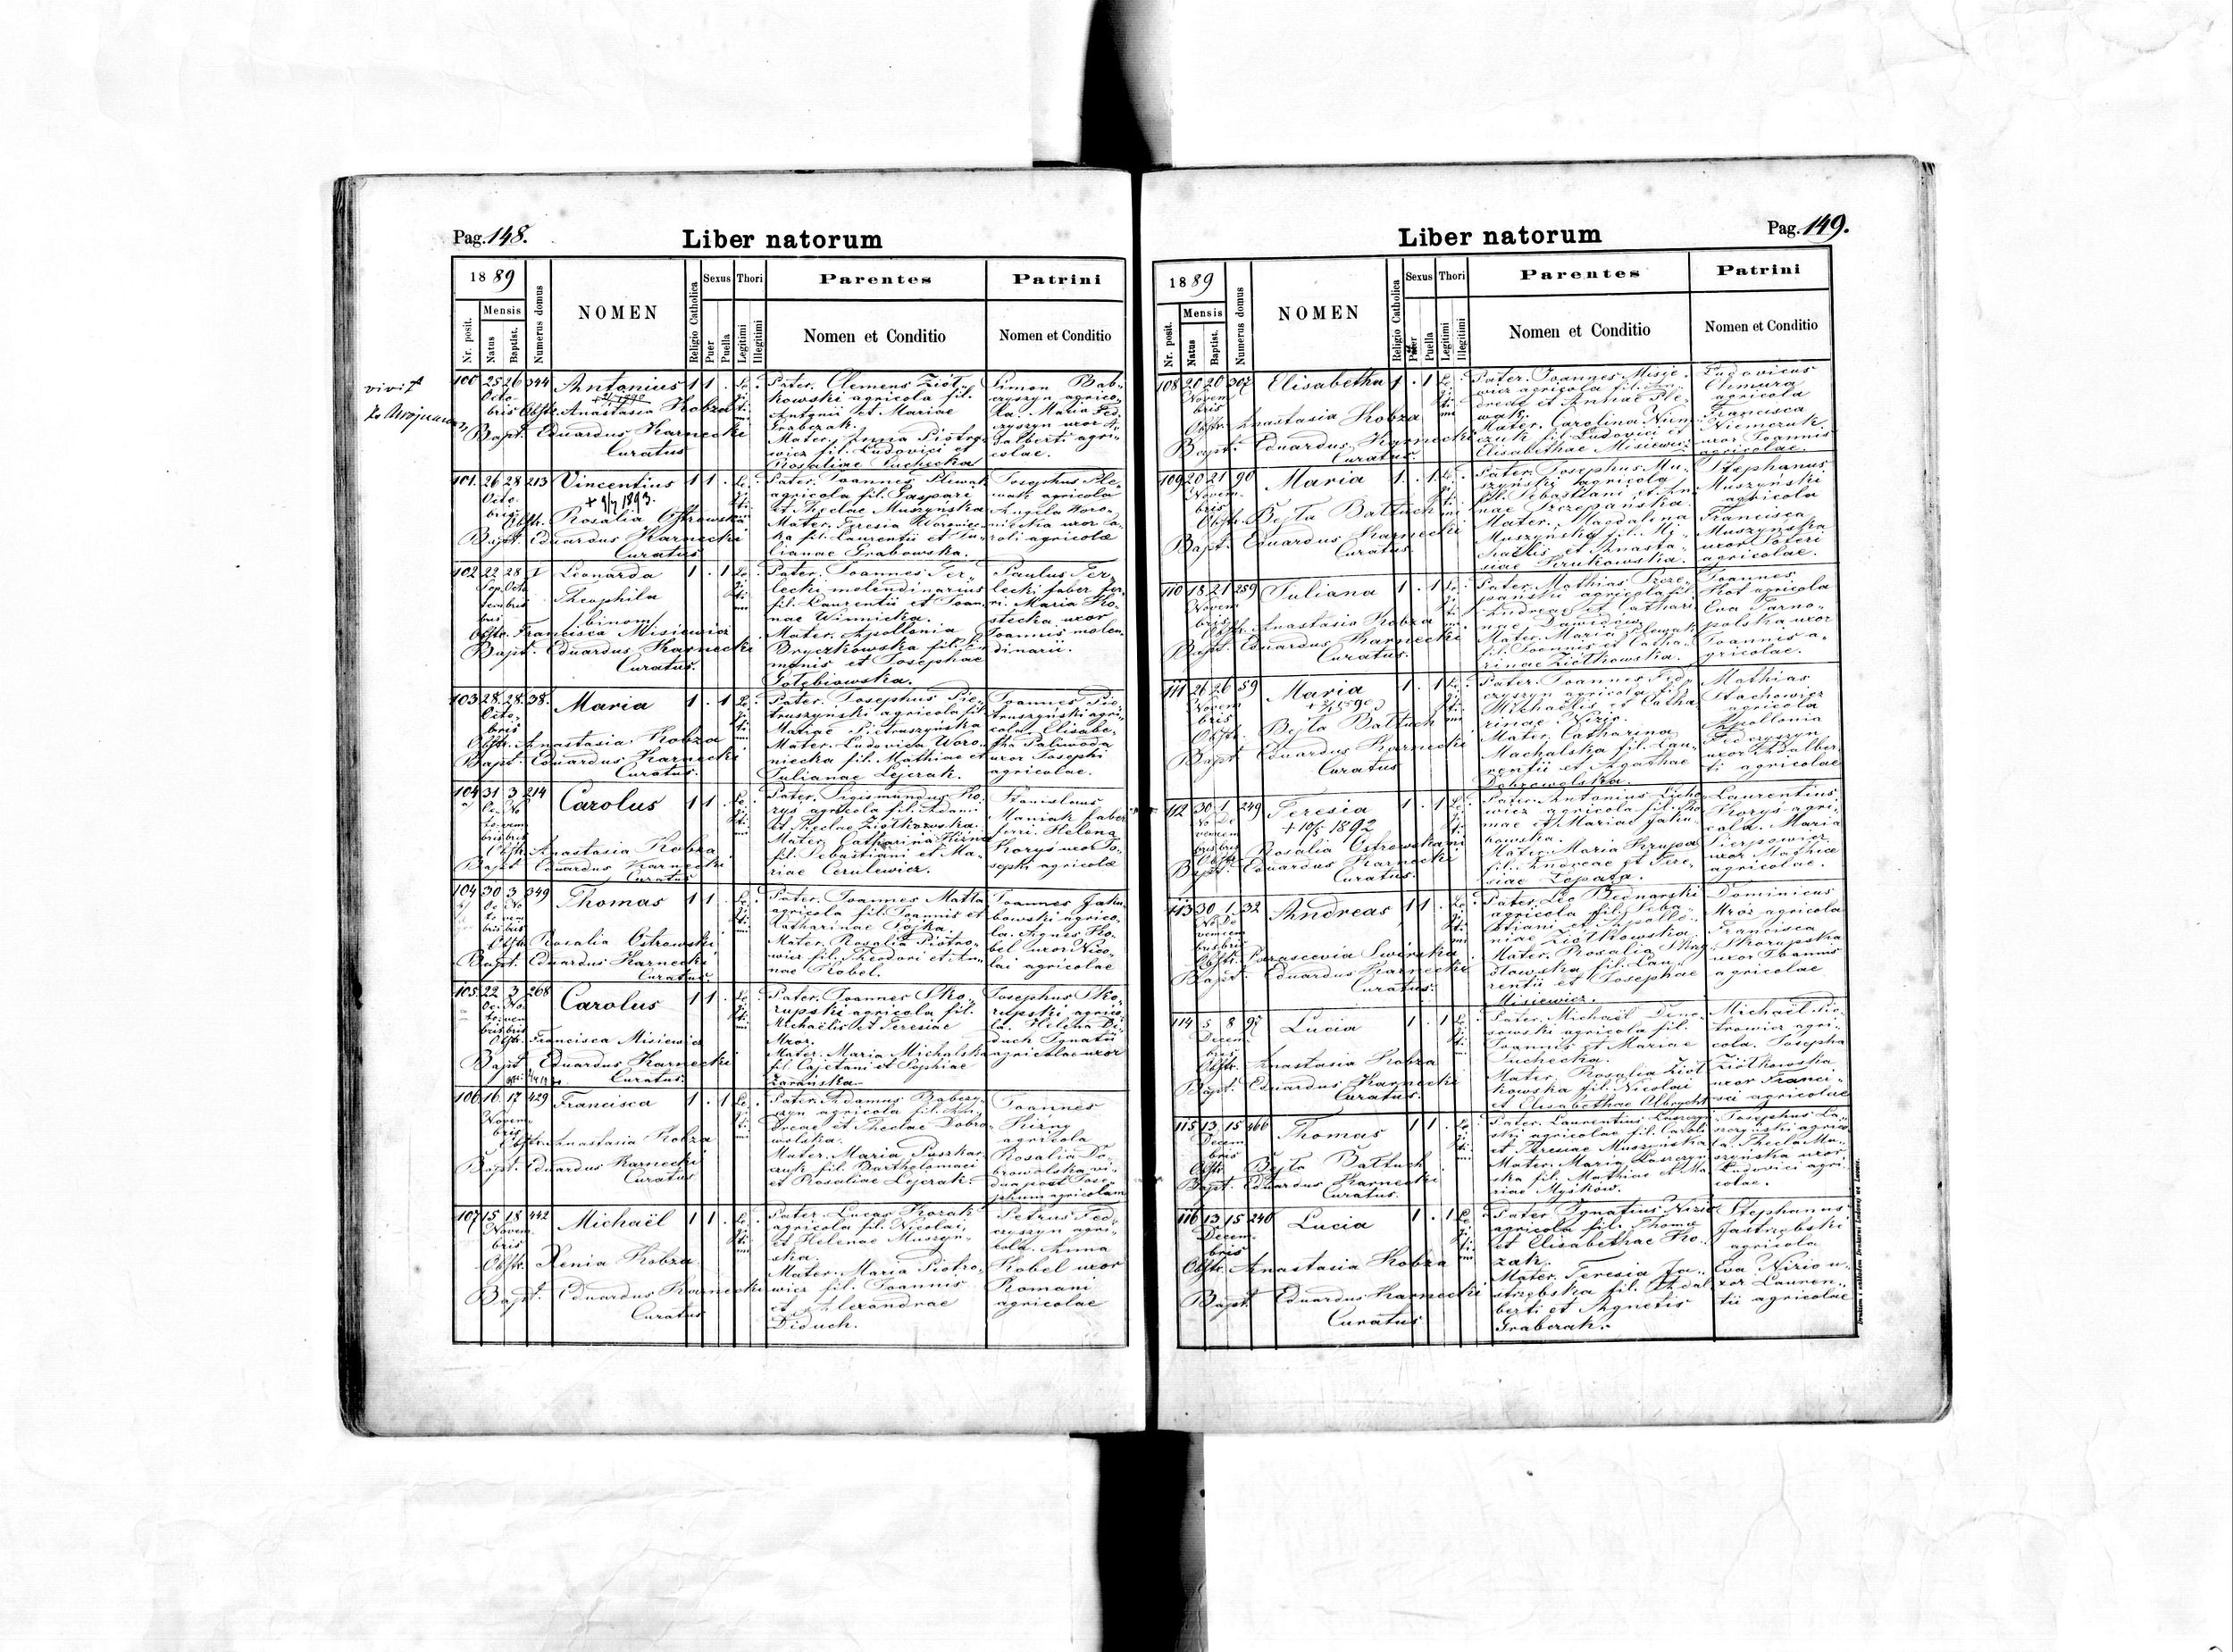 Pag. 148.
Liber natorum
1889
Nr. posit.
Mensis
Natus
Baptist.
Numerus domus
NOMEN
Religio Catholica
Sexus
Puer
Puella
Thori
Legitimi
Illegitimi
Parentes
Nomen et Conditio
Patrini
Nomen et Conditio
vivit
100 25 26 344 Antonius 1 1 .
Octobris
Obstr. Anastasia Kobza
Bapt. Eduardus Karnecki
Curatus
Pater. Clemens Ziół-
kowski agricola fil.
Antonii et Mariae
Grabczak.
Mater. Anna Piotro-
wicz fil. Ludovici et
Rosaliae Suchecka
Simon Bab-
czyszyn agrico-
la. Maria Fed-
czyszyn uxor A-
dalberti agri-
colae.
101. 26 28 213 Vincentius 1 1 .
Octobris
+ 9/7 1893.
Obstr. Rosalia Ostrowska
Bapt. Eduardus Karnecki
Curatus
Pater. Joannes Plewak
agricola fil. Gaspari
et Theclae Muszyńska
Mater. Teresia Woroniec-
ka fil. Laurentii et Ju-
lianae Grabowska.
Josephus Ple-
wak agricola
Angela Woro-
niecka uxor Ca-
roli agricolae
102 22 28 1 Leonarda 1 . 1
Septembris Octobris
Theophila
binom.
Obstr. Francisca Misiewicz
Bapt. Eduardus Karnecki
Curatus.
Pater. Joannes Ter-
lecki molendinarius
fil. Laurentii et Joan-
nae Winnicka.
Mater. Apollonia
Dryczkowska fil. Si-
monis et Josephae
Gołębiowska.
Paulus Ter-
lecki faber fer-
ri. Maria Ko-
stecka uxor
Joannis molen-
dinarii.
103 28. 28. 38. Maria 1 . 1
Octobris
Obstr. Anastasia Kobza
Bapt. Eduardus Karnecki
Curatus.
Pater. Josephus Pie-
truszyński agricola fil.
Mariae Pietruszyńska
Mater. Ludovica Woro-
niecka fil. Mathiae et
Julianae Lejczak.
Joannes Pie-
truszyński agri-
cola. Elisabe-
tha Paliwoda
uxor Josephi
agricolae.
104 31 3 214 Carolus 1 1 .
Octobris Novembris
Obstr. Anastasia Kobza
Bapt. Eduardus Karnecki
Curatus
Pater. Sigismundus Ko-
rys agricola fil. Adami
et Theclae Ziółkowska.
Mater. Catharina Hirna
fil. Sebastiani et Ma-
riae Cerulewicz.
Stanislaus
Maniak faber
ferri. Helena
Korys uxor Jo-
sephi agricolae
104 30 3 349 Thomas 1 1 .
Octobris Novembris
Obstr. Rosalia Ostrowski
Bapt. Eduardus Karnecki
Curatus.
Pater. Joannes Matla
agricola fil. Joannis et
Catharinae Sojka.
Mater. Rosalia Piotro-
wicz fil. Theodori et An-
nae Kobel.
Joannes Jaku-
bowski agrico-
la. Agnes Ko-
bel uxor Nico-
lai agricolae
105. 22 3 268 Carolus 1 1 .
Octobris Novembris
Obstr. Francisca Misiewicz
Bapt. Eduardus Karnecki
Curatus.
Pater. Joannes Sko-
rupski agricola fil.
Michaëlis et Teresiae
Mroz.
Mater. Maria Michalska
fil. Cajetani et Sophiae
Zarańska.
Josephus Sko-
rupski agrico-
la. Helena Di-
duch Ignatii
agricolae uxor
106 16. 17 429 Francisca 1 . 1
Novembris
Obstr. Anastasia Kobza
Bapt. Eduardus Karnecki
Curatus
Pater. Adamus Babczy-
szyn agricola fil. An-
dreae et Theclae Dobro-
wolska.
Mater. Maria Puszkar-
czuk fil. Bartholomaei
et Rosaliae Lejczak.
Joannes
Hirny
agricola
Rosalia Do-
browolska vi-
dua post Jose-
phum agricolam
107 15 18 442 Michaël 1 1 .
Novembris
Obstr. Xenia Kobza
Bapt. Eduardus Karnecki
Curatus
Pater. Lucas Kozak
agricola fil. Nicolai,
et Helenae Muszyń-
ska.
Mater. Maria Piotro-
wicz fil. Joannis
et Alexandrae
Diduch.
Petrus Fed-
czyszyn agri-
cola. Anna
Kobel uxor
Romani
agricolae
Pag. 149.
Liber natorum
1889
Nr. posit.
Mensis
Natus
Baptist.
Numerus domus
NOMEN
Religio Catholica
Sexus
Puer
Puella
Thori
Legitimi
Illegitimi
Parentes
Nomen et Conditio
Patrini
Nomen et Conditio
108 20 20 307 Elisabetha 1 . 1
Novembris
Obstr. Anastasia Kobza
Bapt. Eduardus Karnecki
Curatus
Pater. Joannes Misie-
wicz agricola fil. An-
dreae et Annae Ple-
wak.
Mater. Carolina Niem-
czuk fil. Ludovici et
Elisabethae Misiewicz
Ludovicus
Chmura
agricola
Francisca
Niemczuk
uxor Joannis
agricolae.
109 20 21 90 Maria 1 . 1
Novembris
Obstr. Bejta Bałtuch
Bapt. Eduardus Karnecki
Curatus.
Pater. Josephus Mu-
szyński agricola
fil. Sebastiani et An-
nae Szczepańska.
Mater. Magdalena
Muszyńska fil. Mi-
chaëlis et Anasta-
siae Krukowska.
Stephanus
Muszyński
agricola
Francisca
Muszyńska
uxor Petri
agricolae.
110 18 21 259 Juliana 1 . 1
Novembris
Obstr. Anastasia Kobza
Bapt. Eduardus Karnecki
Curatus.
Andreae et Cathari-
nae Dawidow.
Mater. Maria Plewak
fil. Joannis et Catha-
rinae Ziółkowska.
Joannes
Kot agricola
Eva Tarno-
polska uxor
Joannis a-
gricolae.
111 26 26 59 Maria 1 . 1
Novembris
Obstr. Bejta Bałtuch
Bapt. Eduardus Karnecki
Curatus
Pater. Joannes Fed-
czyszyn agricola fil.
Michaëlis et Catha-
rinae Nizio.
Mater. Catharina
Machalska fil. Lau-
rentii et Agathae
Dobrowolska.
Mathias
Stachowicz
agricola
Apollonia
Fedczyszyn
uxor Adalber-
ti agricolae
112 30 1 249 Teresia 1 . 1
Novembris Decembris
+ 10/5 1892
Obstr. Rosalia Ostrowska
Bapt. Eduardus Karnecki
Curatus.
Pater. Antonius Licho-
wicz agricola fil. Tho-
mae et Mariae Jaku-
bowska.
Mater. Maria Krupa
fil. Andreae et Tere-
siae Łopata.
Laurentius
Korys agri-
cola. Maria
Sierpowicz
uxor Mathiae
agricolae.
113 30 1 32 Andreas 1 1 .
Novembris Decembris
Obstr. Parascevia Swirska
Bapt. Eduardus Karnecki
Curatus.
Pater. Leo Bednarski
agricola fil. Seba-
stiani et Apollo-
niae Ziółkowska.
Mater. Rosalia
fil. Lau-
rentii et Josephae
Misiewicz.
Dominicus
Mróz agricola
Francisca
Skorupska
uxor Joannis
agricolae
114 5 8 97 Lucia 1 . 1
Decembris
Obstr. Anastasia Kobza
Bapt. Eduardus Karnecki
Curatus.
Pater. Michaël Dena-
sowski agricola fil.
Joannis et Mariae
Suchecka.
Mater. Rosalia Ziół-
kowska fil. Nicolai
et Elisabethae Olbrycht
Michaël Pio-
trowicz agri-
cola. Josepha
Ziółkowska
uxor Franci-
sci agricolae
115 13. 15 466 Thomas 1 1 .
Decembris
Obstr. Bejta Bałtuch
Bapt. Eduardus Karnecki
Curatus.
Pater. Laurentius Laszczyń-
ski agricolae fil. Caroli
et Teresiae Muszyńska
Mater. Maria Laszczyń-
ska fil. Mathiae et Ma-
riae Myśków.
Josephus La-
szczyński agrico-
la. Thecla Mu-
szyńska uxor
Ludovici agri-
colae.
116 13 15 240 Lucia 1 . 1
Decembris
Obstr. Anastasia Kobza
Bapt. Eduardus Karnecki
Curatus
Pater Ignatius Nizio
agricola fil. Thomae
et Elisabethae Ko-
zak.
Mater. Teresia Ja-
strzębska fil. Adal-
berti et Agnetis
Grabczak.
Stephanus
Jastrzębski
agricola
Eva Nizio u-
xor Lauren-
tii agricolae